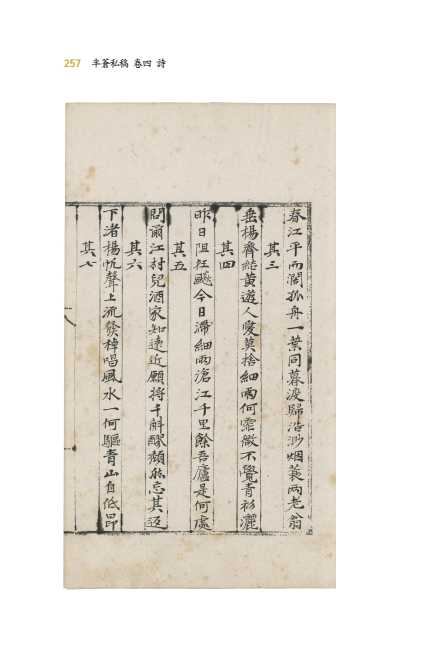 257 半蒼私稿 卷四 詩
春江平而濶孤舟一葉同暮渡歸浩渺烟蓑兩老翁
其三
垂楊齊結黃遊人愛莫捨細雨何霏微不覺青衫灑
其四
昨日阻狂颷今日滯細雨滄江千里餘吾廬是何處
其五
問爾江村兒酒家知遠近願將千斛醪頹然忘其返
其六
下渚楊帆聲上流發棹唱風水一何驅青山自低昂
其七